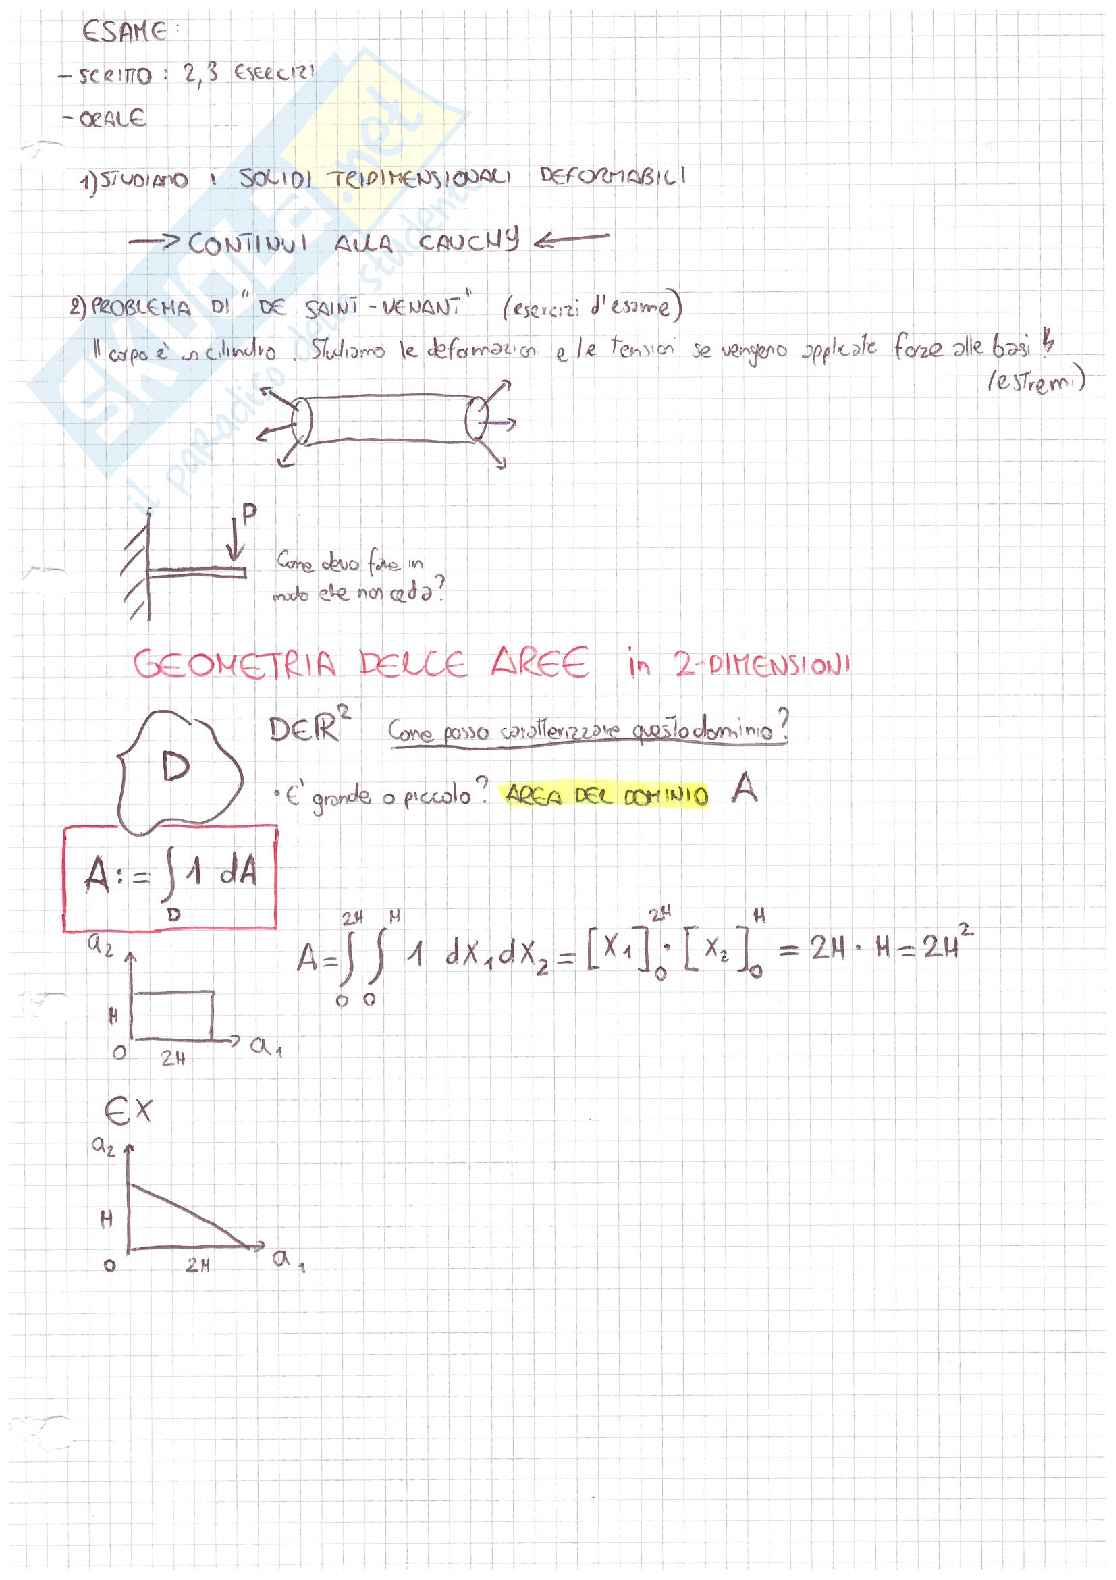 ESAME:
- SCRITTO: 2,3 ESERCIZI
- ORALE
1) STUDIAMO I SOLIDI TRIDIMENSIONALI DEFORMABILI
→ CONTINUI ALLA CAUCHY ←
2) PROBLEMA DI "DE SAINT-VENANT" (esercizi d'esame)
Il corpo è un cilindro. Studiamo le deformazioni e le tensioni se vengono applicate forze alle basi
(estremi)
P
Come devo fare in
modo che non ceda?
GEOMETRIA DELLE AREE in 2-DIMENSIONI
D∈ℝ² Come posso caratterizzare questo dominio?
D
• E' grande o piccolo? AREA DEL DOMINIO A
A := ∫_D 1 dA
A = ∫_0^{2H} ∫_0^H 1 dx₁dx₂ = [x₁]_0^{2H} · [x₂]_0^H = 2H · H = 2H²
a₂
H
O 2H a₁
EX
a₂
H
O 2H a₁
SKUOLA.net
il paradiso dello studente